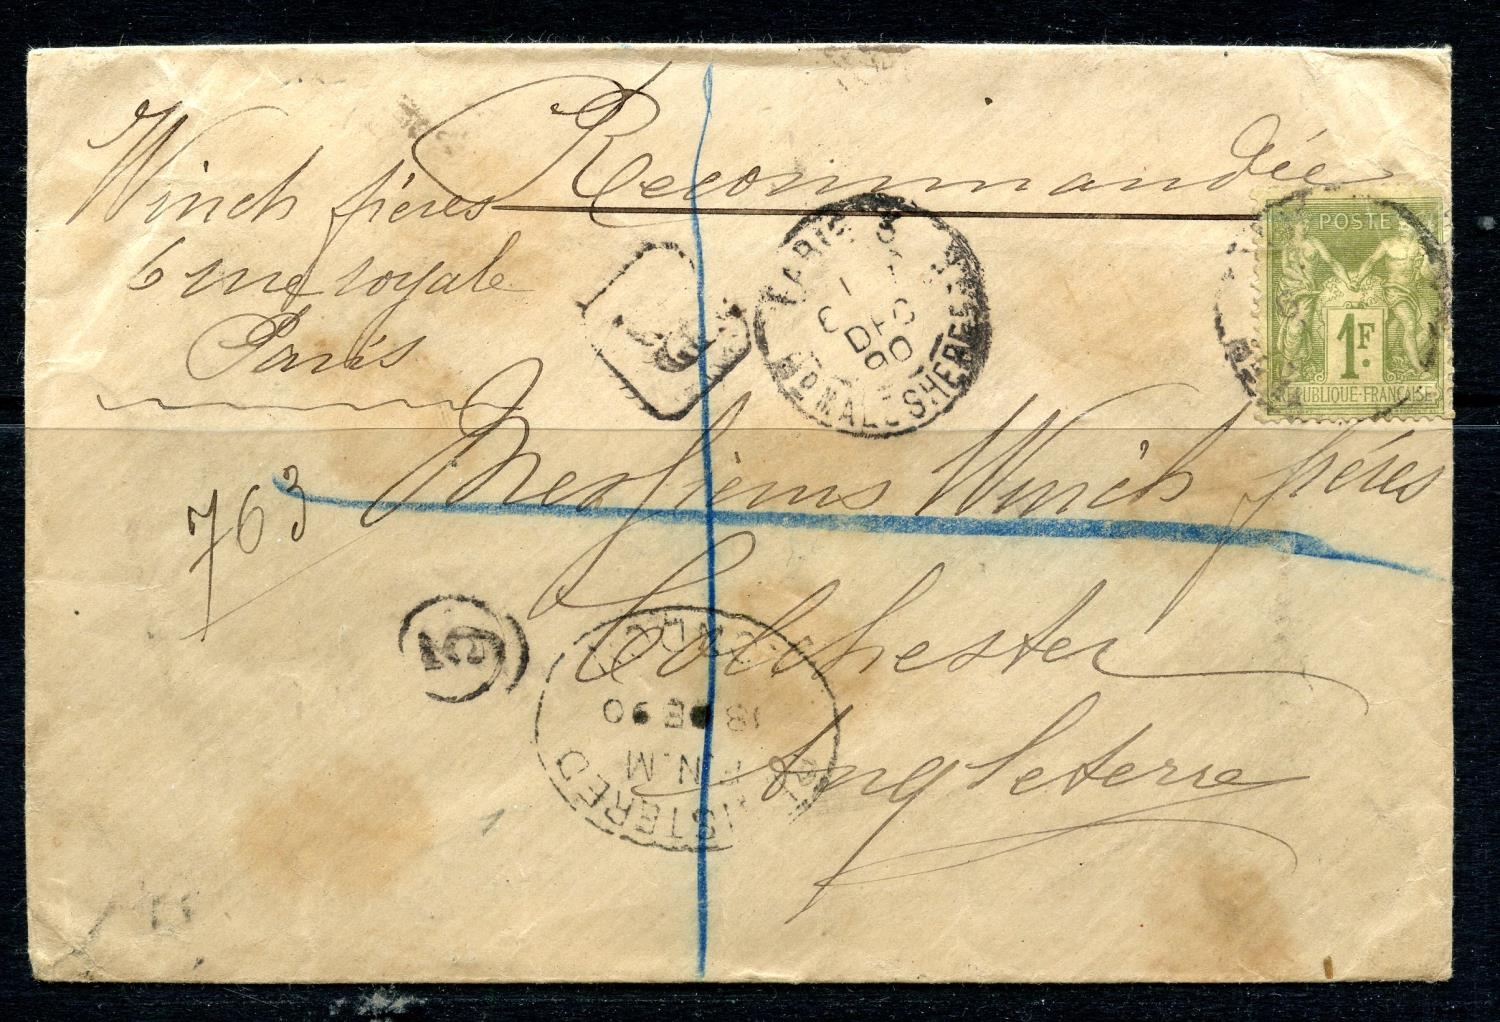 Recommandée
Winch frères
6 rue royale
Paris
PARIS
DEC
90
MALESHERBES
POSTE
1F.
RÉPUBLIQUE·FRANÇAISE
763
Messieurs Winch frères
Colchester
Angleterre
REGISTERED
18 DE 90